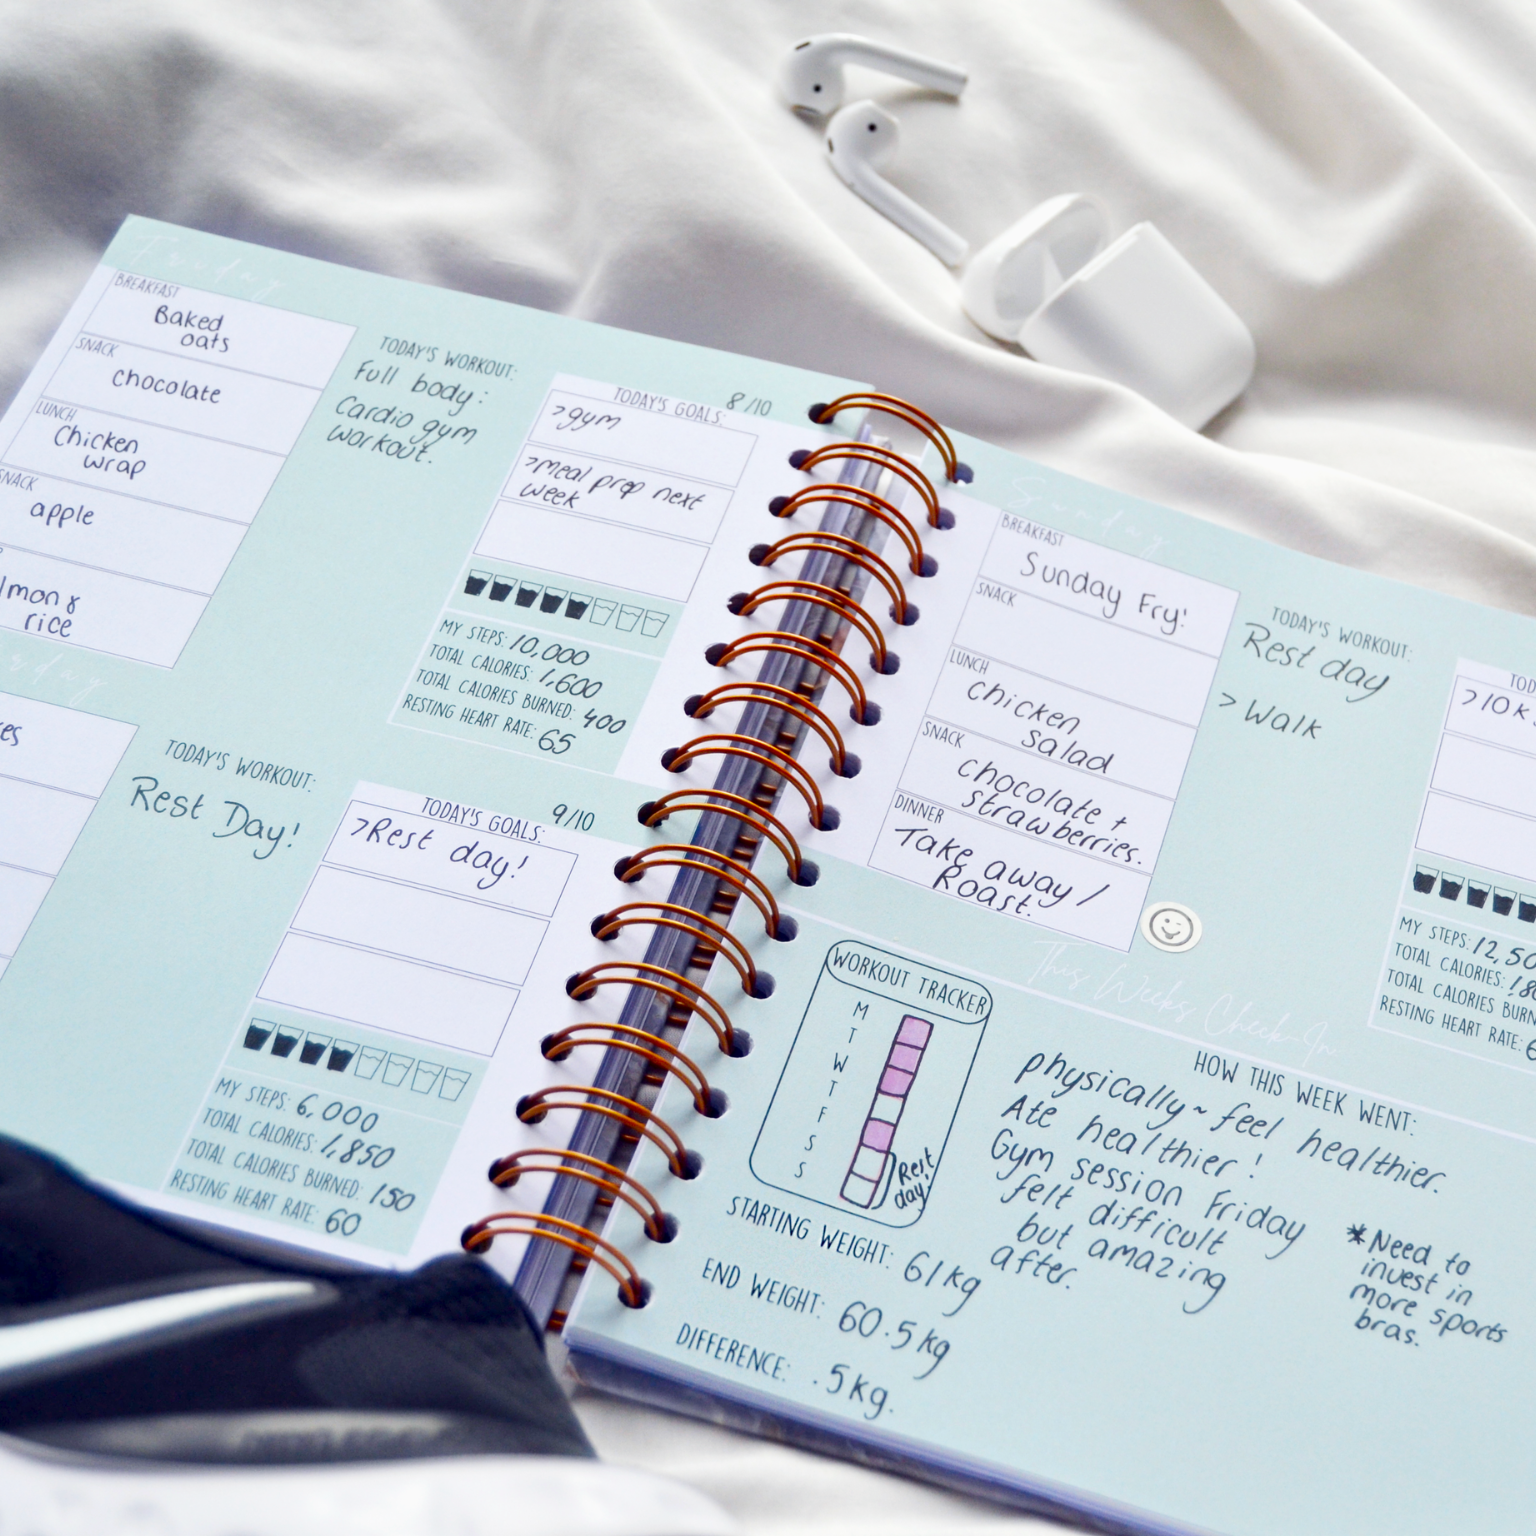 Friday
BREAKFAST
Baked
oats
SNACK
chocolate
LUNCH
Chicken
wrap
SNACK
apple
rice
TODAY'S WORKOUT:
Full body:
Cardio gym
workout.
8/10
TODAY'S GOALS:
>gym
>meal prep next
week
MY STEPS: 10,000
TOTAL CALORIES: 1,600
TOTAL CALORIES BURNED: 400
RESTING HEART RATE: 65
TODAY'S WORKOUT:
Rest Day!
9/10
TODAY'S GOALS:
>Rest day!
MY STEPS: 6,000
TOTAL CALORIES: 1,850
TOTAL CALORIES BURNED: 150
RESTING HEART RATE: 60
Sunday
BREAKFAST
Sunday Fry!
SNACK
LUNCH
chicken
salad
SNACK
chocolate +
strawberries.
DINNER
Take away /
Roast.
TODAY'S WORKOUT:
Rest day
>Walk
>10k
MY STEPS: 12,50
TOTAL CALORIES:
TOTAL CALORIES
RESTING HEART RATE:
This Weeks Check-In
WORKOUT TRACKER
M
T
W
T
F
S
S
Rest
day!
STARTING WEIGHT: 61kg
END WEIGHT: 60.5kg
DIFFERENCE: .5kg.
HOW THIS WEEK WENT:
physically~feel healthier.
Ate healthier!
Gym session Friday
felt difficult
but amazing
after.
*Need to
invest in
more sports
bras.